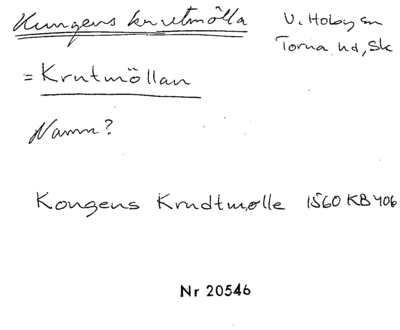 Kungens krutmölla V. Hoby sn
Torna hd, Sk
= Krutmöllan
Namn?
Kongens Krudtmølle 1560 KB 406
Nr 20546